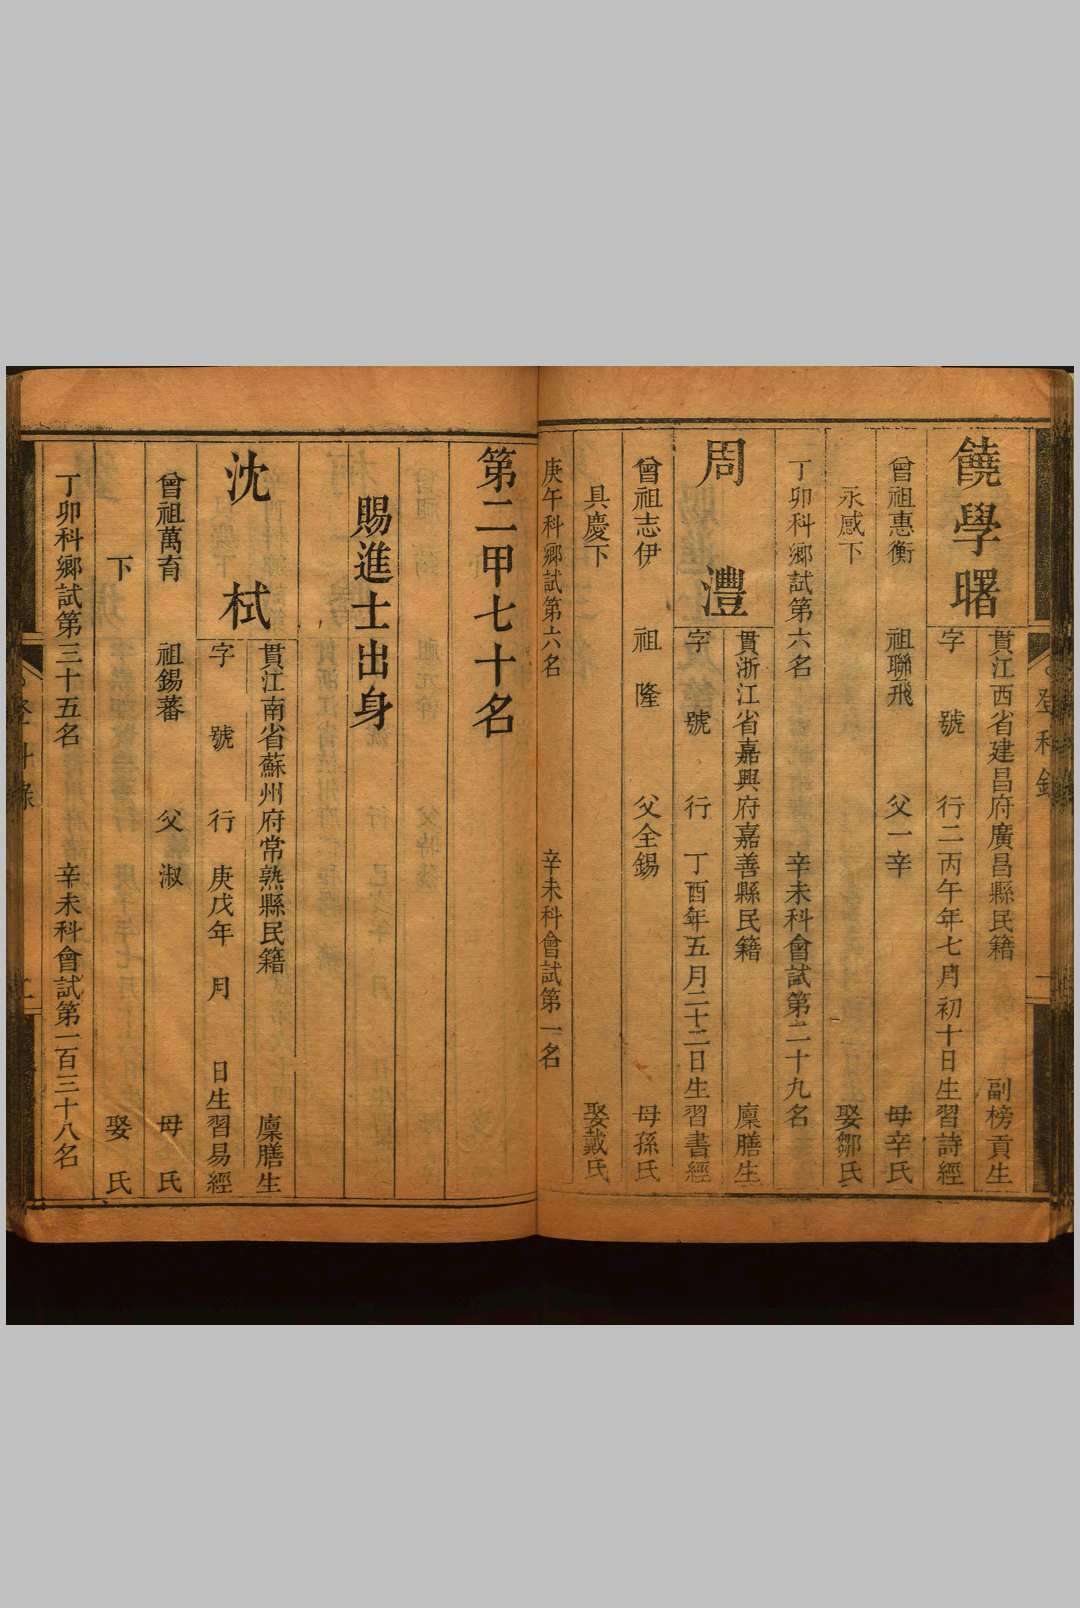 饒學曙
貫江西省建昌府廣昌縣民籍 副榜貢生
字 號 行二丙午年七月初十日生習詩經
曾祖惠衡 祖聯飛 父一辛 母辛氏
永感下 娶鄒氏
丁卯科鄉試第六名 辛未科會試第二十九名
周 灃
貫浙江省嘉興府嘉善縣民籍 廩膳生
字 號 行 丁酉年五月二十二日生習書經
曾祖志伊 祖 隆 父全錫 母孫氏
具慶下 娶戴氏
庚午科鄉試第六名 辛未科會試第一名
第二甲七十名
賜進士出身
沈 栻
貫江南省蘇州府常熟縣民籍 廩膳生
字 號 行 庚戌年 月 日生習易經
曾祖萬育 祖錫蕃 父 淑 母 氏
下 娶 氏
丁卯科鄉試第三十五名 辛未科會試第一百三十八名
登科錄